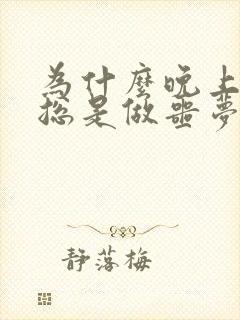 为什麼晚上
总是做噩夢
靜落梅